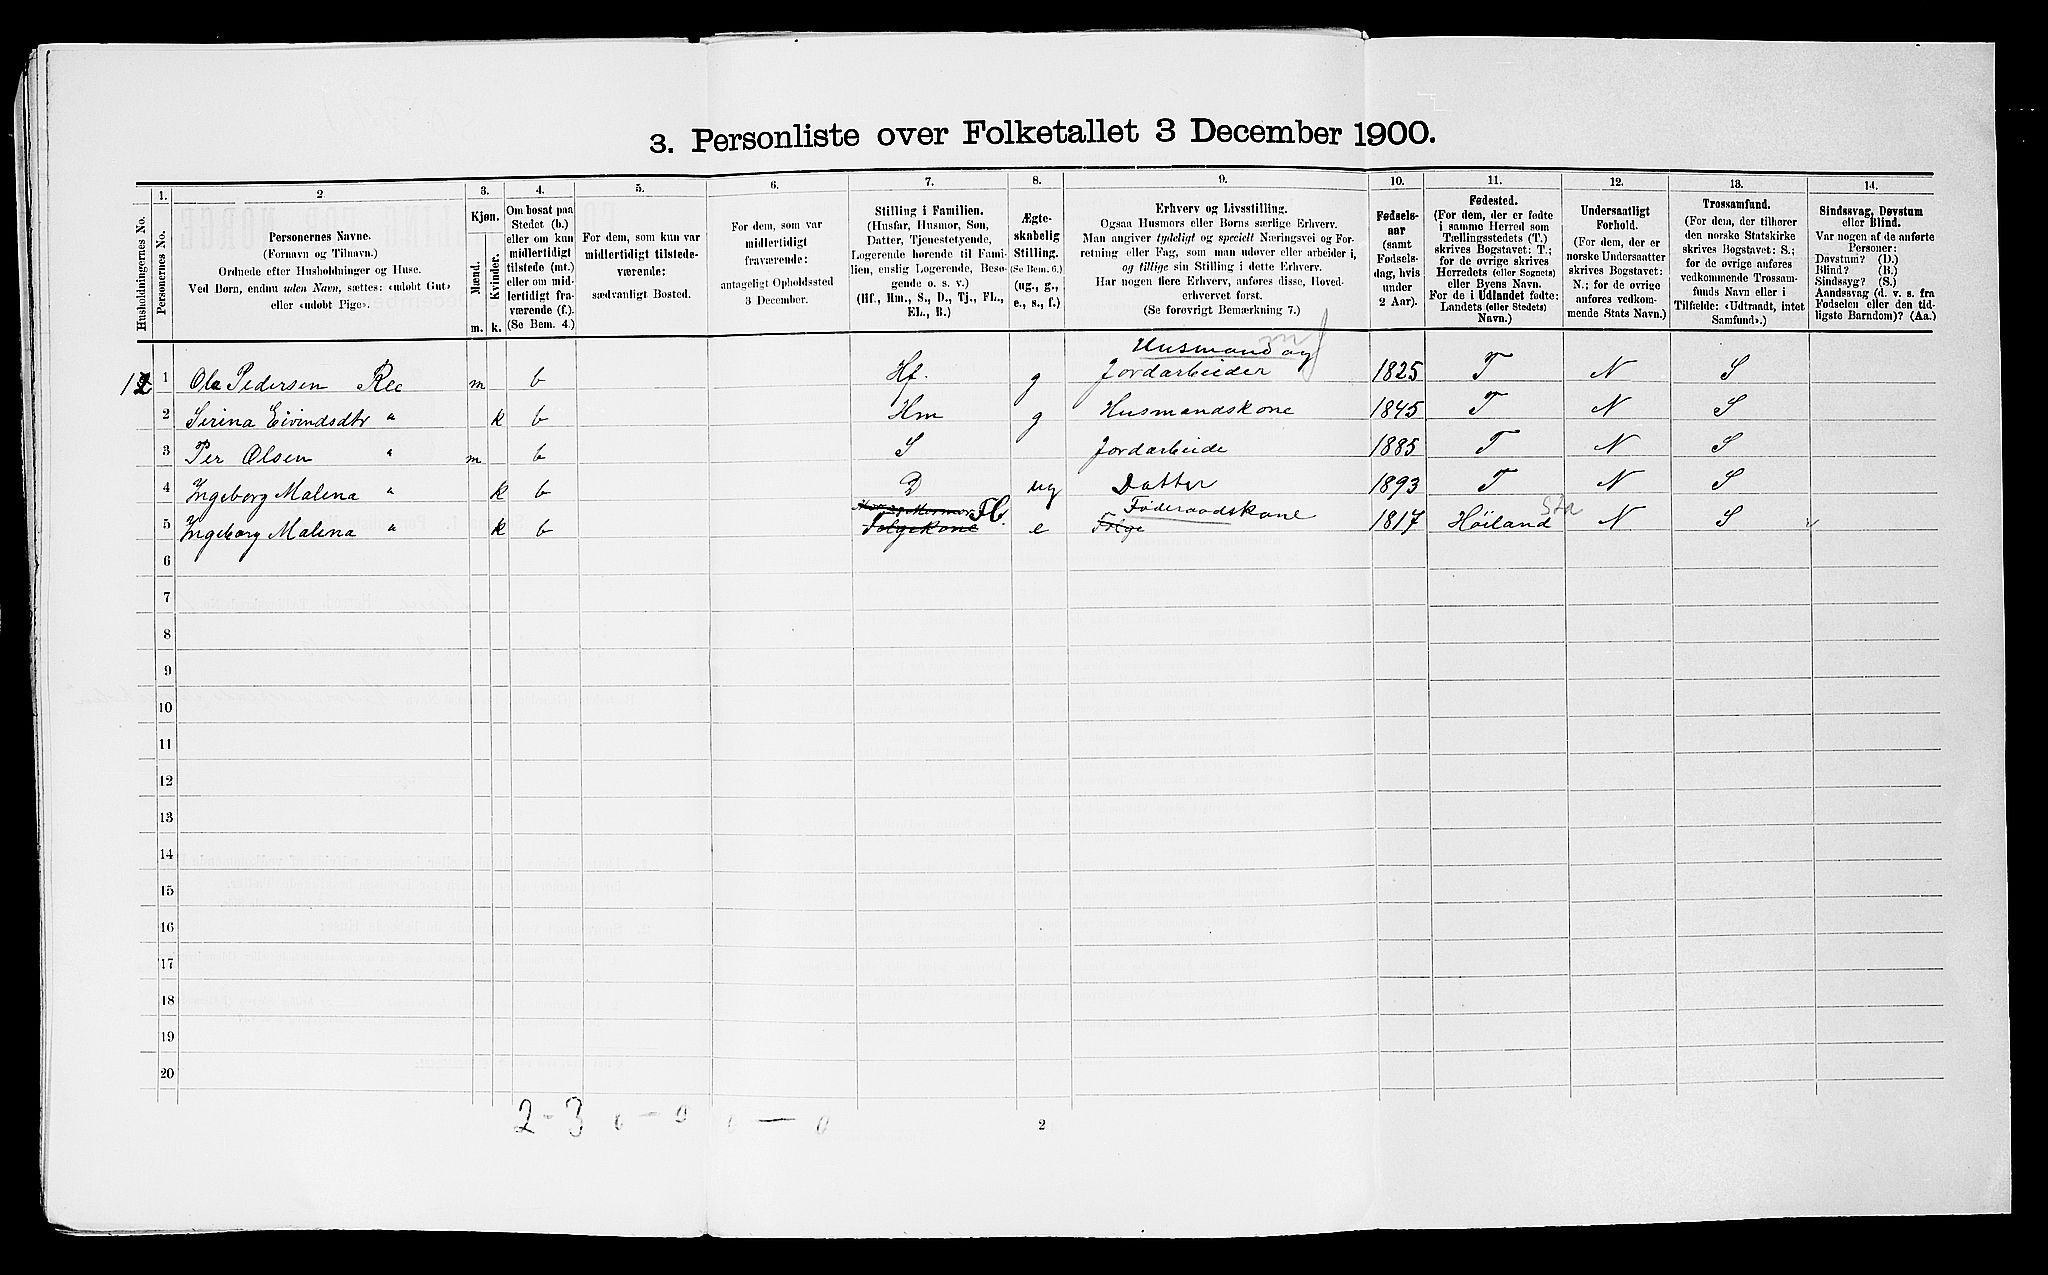 3. Personliste over Folketallet 3 December 1900.
Husholdningernes No.
1.
Personernes No.
2.
Personernes Navne.
(Fornavn og Tilnavn.)
Ordnede efter Husholdninger og Huse.
Ved Børn, endnu uden Navn, sættes: «udøbt Gut»
eller «udøbt Pige».
3.
Kjøn.
Mænd.
Kvinder.
m.
k.
4.
Om bosat paa
Stedet (b.)
eller om kun
midlertidigt
tilstede (mt.)
eller om mid-
lertidigt fra-
værende (f.)
(Se Bem. 4.)
5.
For dem, som kun var
midlertidigt tilstede-
værende:
sædvanligt Bosted.
6.
For dem, som var
midlertidigt
fraværende:
antageligt Opholdssted
3 December.
7.
Stilling i Familien.
(Husfar, Husmor, Søn,
Datter, Tjenestetyende,
Logerende hørende til Fami-
lien, enslig Logerende, Besø-
gende o. s. v.)
(Hf., Hm., S., D., Tj., FL.,
EL., B.)
8.
Ægte-
skabelig
Stilling.
(Se Bem. 6.)
(ug., g.,
e., s., f.)
9.
Erhverv og Livsstilling.
Ogsaa Husmors eller Børns særlige Erhverv.
Man angiver tydeligt og specielt Næringsvei og For-
retning eller Fag, som man udøver eller arbeider i,
og tillige sin Stilling i dette Erhverv.
Har nogen flere Erhverv, anføres disse, Hoved-
erhvervet først.
(Se forøvrigt Bemærkning 7.)
10.
Fødsels-
aar
(samt
Fødsels-
dag, hvis
under
2 Aar).
11.
Fødested.
(For dem, der er fødte
i samme Herred som
Tællingsstedets (T.)
skrives Bogstavet: T.;
for de øvrige skrives
Herredets (eller Sognets)
eller Byens Navn.
For de i Udlandet fødte:
Landets (eller Stedets)
Navn.)
12.
Undersaatligt
Forhold.
(For dem, der er
norske Undersaatter
skrives Bogstavet:
N.; for de øvrige
anføres vedkom-
mende Stats Navn.)
13.
Trossamfund.
(For dem, der tilhører
den norske Statskirke
skrives Bogstavet: S.;
for de øvrige anføres
vedkommende Trossam-
funds Navn eller i
Tilfælde: «Udtraadt, intet
Samfund».)
14.
Sindssvag, Døvstum
eller Blind.
Var nogen af de anførte
Personer:
Døvstum? (D.)
Blind? (B.)
Sindssyg? (S.)
Aandssvag (d. v. s. fra
Fødselen eller den tid-
ligste Barndom)? (Aa.)
Husmand og
1 Ole Pedersen Ree m b Hf. g Jordarbeider 1825 T N S
2 Sirina Eivindsdtr " k b Hm g Husmandskone 1845 T N S
3 Per Olsen " m b S Jordarbeide 1885 T N S
4 Ingeborg Malena " k b D ug Datter 1893 T N S
FL. Føderaadskone Sta
5 Ingeborg Malena " k b Følgekone e Følge 1817 Høiland N S
6
7
8
9
10
11
12
13
14
15
16
17
18
19
20
2-3 0-0 0-0
2